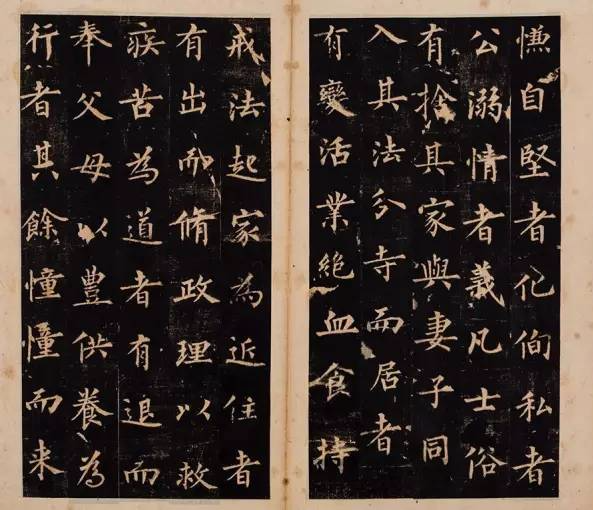 慊自堅者化侚私者
公溺情者義凡士俗
有捨其家與妻子同
入其法分寺而居者
有變活業絕血食持
戒法起家為近住者
有出而脩政理以救
疾苦為道者有退而
奉父母以豊供養為
行者其餘憧憧而来